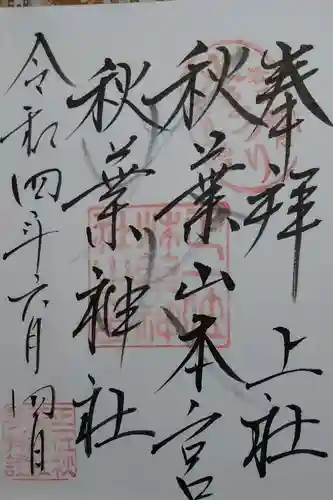 奉拝
上社
秋葉山本宮
秋葉神社
令和四年六月四日